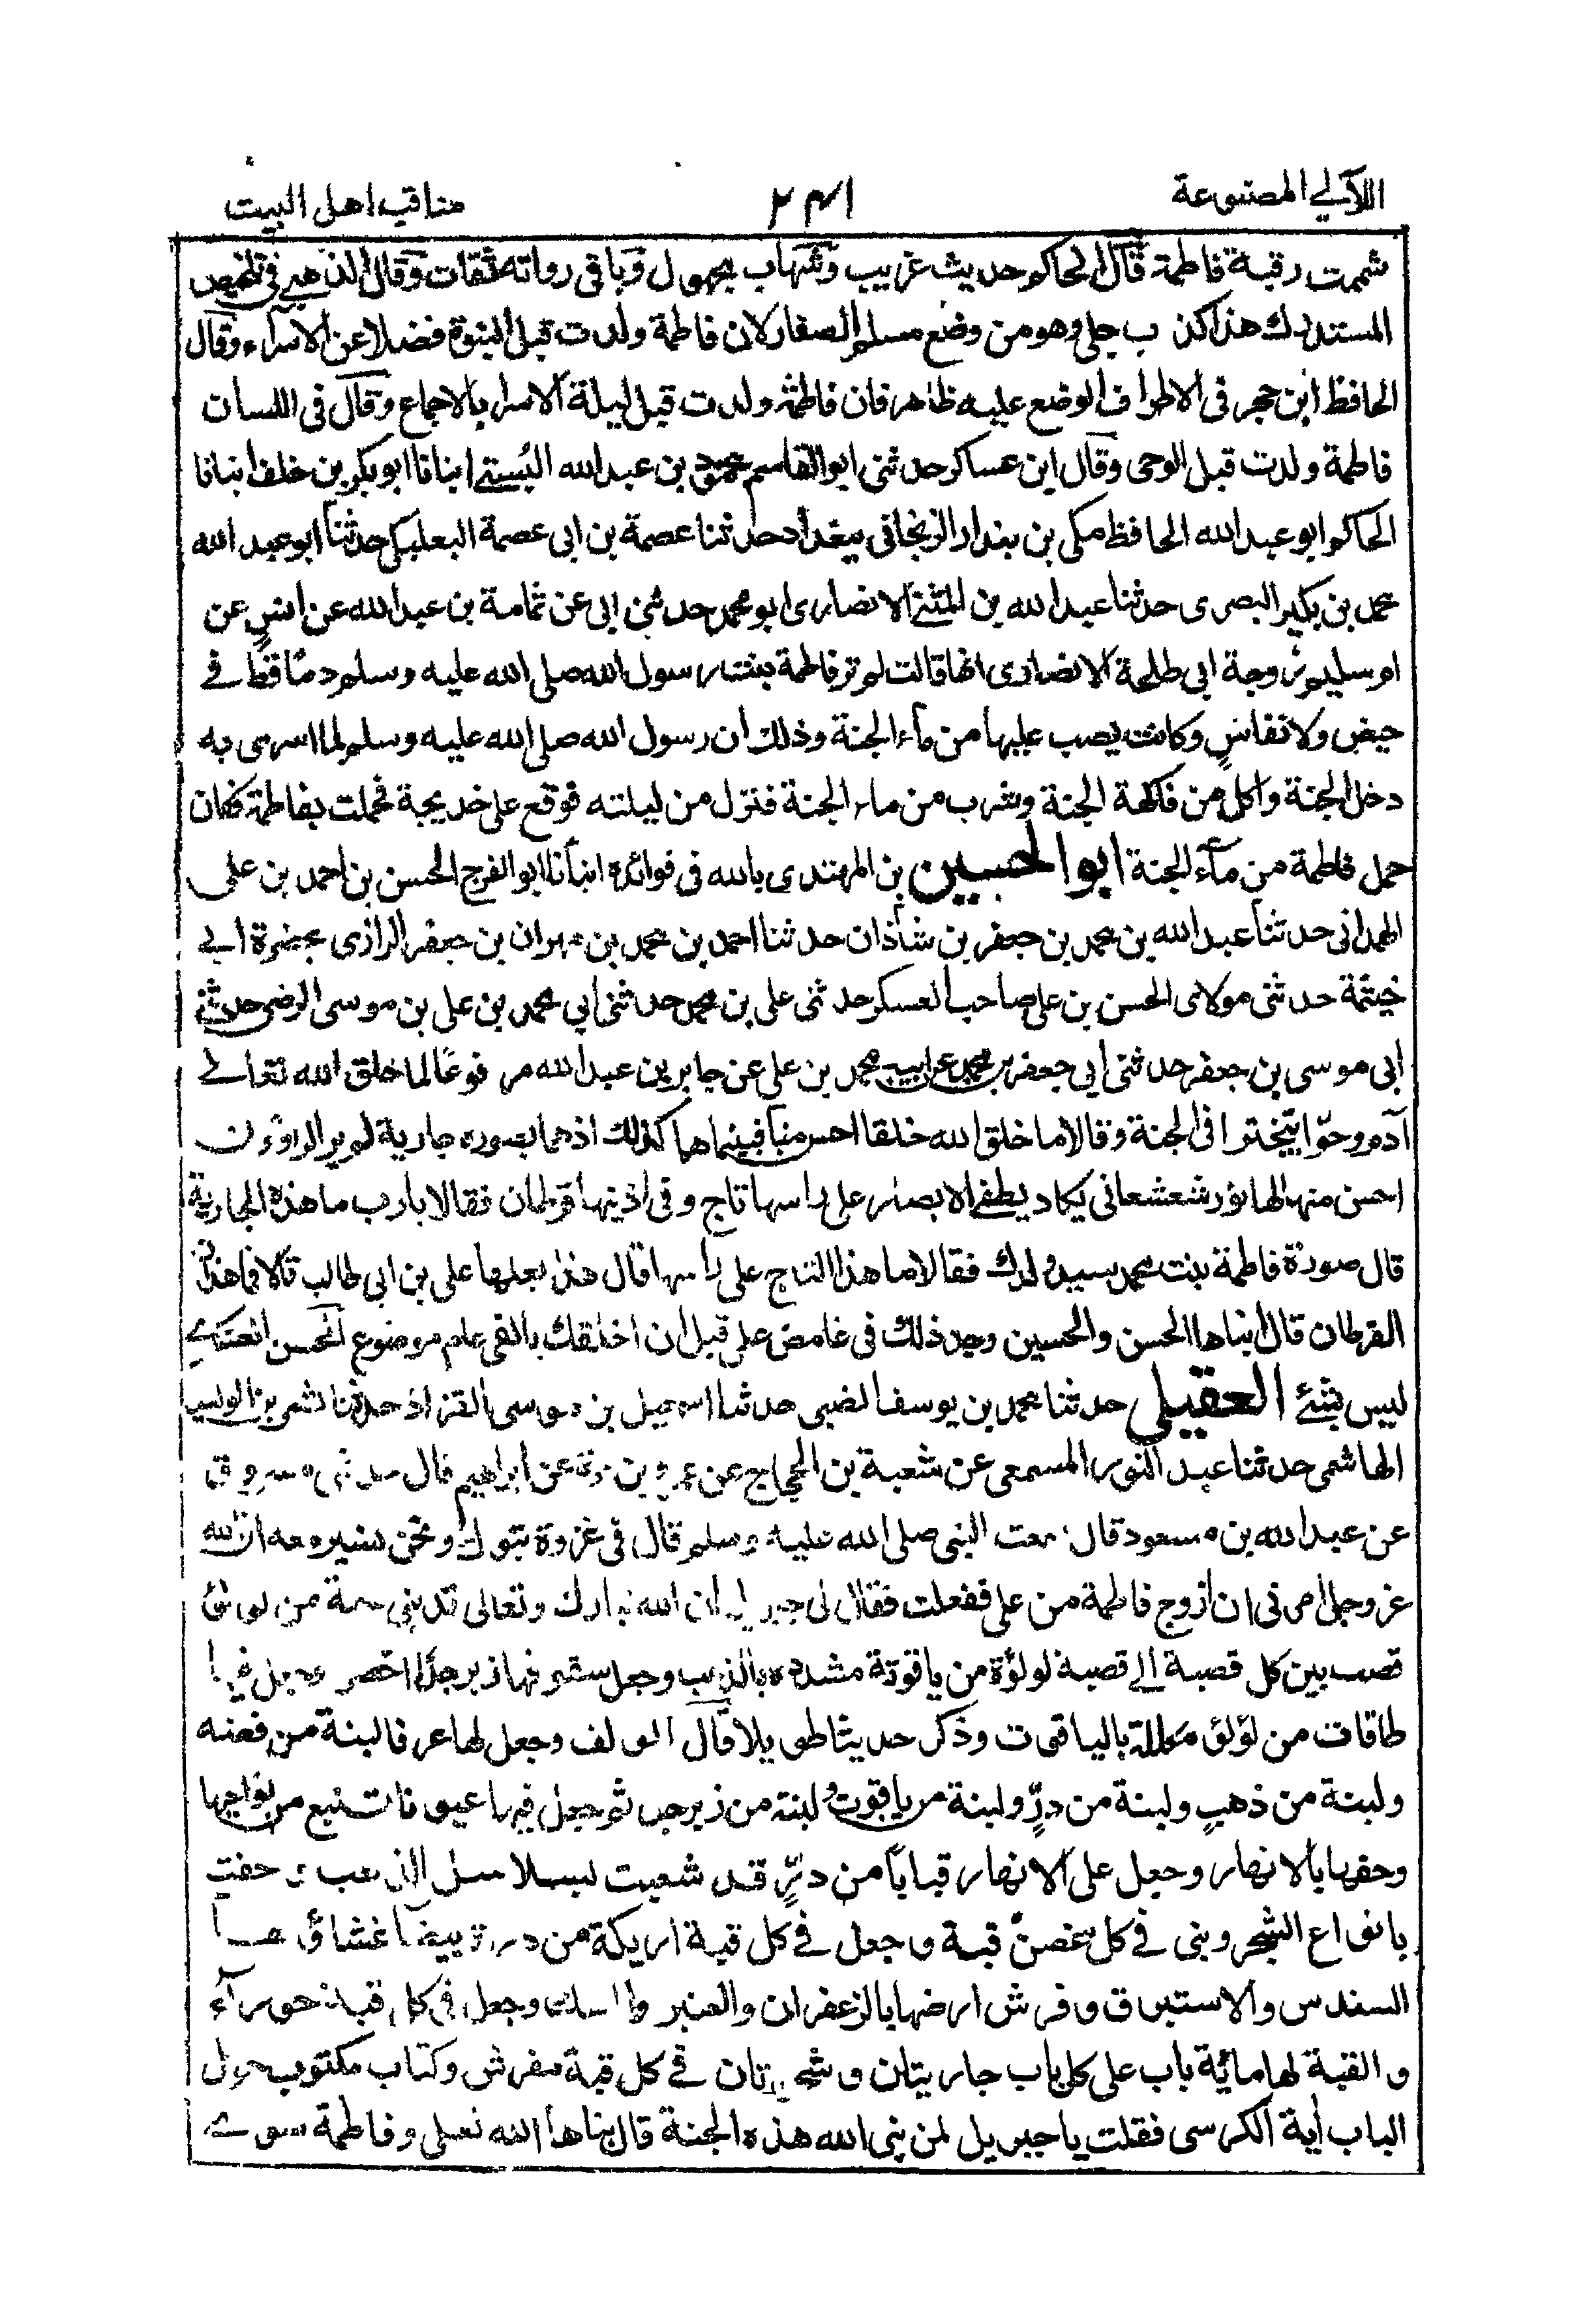 اللآلي المصنوعة ٢٤١ مناقب اهل البيت
شممت رقبة فاطمة قال الحاكم حديث غريب وشهاب مجهول وباقي رواته ثقات وقال الذهبي في تلخيص
المستدرك هذا كذب جلي وهو من وضع مسلم الصفار لان فاطمة ولدت قبل النبوة فضلا عن الاسراء وقال
الحافظ ابن حجر في الاطراف الوضع عليه ظاهر فان فاطمة ولدت قبل ليلة الاسرا بالاجماع وقال في اللسان
فاطمة ولدت قبل الوحى وقال ابن عساكر حدثنى ابو القاسم محمود بن عبد الله البستي انبانا ابو بكر بن خلف انبانا
الحاكم ابو عبد الله الحافظ مكى بن بندار الزنجاني ببغداد حدثنا عصمة بن ابى عصمة البعلبكى حدثنا ابو عبد الله
محمد بن بكير البصرى حدثنا عبد الله بن المثنى الانصارى ابو محمد حدثنى ابى عن ثمامة بن عبد الله عن انس عن
ام سليم زوجة ابى طلحة الانصارى انها قالت لم تر فاطمة بنت رسول الله صلى الله عليه وسلم دما قط في
حيض ولا نفاس وكانت يصب عليها من ماء الجنة وذلك ان رسول الله صلى الله عليه وسلم لما اسرى به
دخل الجنة واكل من فاكهة الجنة وشرب من ماء الجنة فنزل من ليلته فوقع على خديجة فحملت بفاطمة فكان
حمل فاطمة من مآء الجنة ابو الحسين بن المهتدى بالله فى فوائده انبأنا ابو الفرج الحسن بن احمد بن على
الهمدانى حدثنا عبد الله بن محمد بن جعفر بن شاذان حدثنا احمد بن محمد بن مهران بن جعفر الرازى بحضرة ابي
خيثمة حدثنى مولاى الحسن بن على صاحب العسكر حدثنى على بن محمد حدثنى ابي محمد بن على بن موسى الرضى حدثنى
ابى موسى بن جعفر حدثنى ابي جعفر بن محمد عن ابيه محمد بن على عن جابر بن عبد الله مرفوعا لما خلق الله تعالى
آدم وحوا تبخترا فى الجنة وقالا ما خلق الله خلقا احسن منا فبينما هما كذلك اذ هما بصورة جارية لم ير الراؤن
احسن منها لها نور شعشعانى يكاد يطفئ الابصار على راسها تاج وفى اذنيها قرطان فقالا يارب ما هذه الجارية
قال صورة فاطمة بنت محمد سيد ولدك فقالا ما هذا التاج على راسها قال هذا بعلها على بن ابى طالب قالا فما هذان
القرطان قال ابناها الحسن والحسين وجد ذلك فى غامض علمى قبل ان اخلقك بالفى عام موضوع الحسن العسكري
ليس بشئ العقيلى حدثنا محمد بن يوسف الضبى حدثنا اسمعيل بن موسى القزاز حدثنا بشر بن الوليد
الهاشمى حدثنا عبد النور المسمعى عن شعبة بن الحجاج عن عمرو بن مرة عن ابراهيم قال حدثنى مسروق
عن عبد الله بن مسعود قال سمعت النبى صلى الله عليه وسلم قال فى غزوة تبوك ونحن نسير معه ان الله
عز وجل امرنى ان ازوج فاطمة من على ففعلت فقال لى جبريل ان الله تبارك وتعالى قد بنى جنة من لؤلؤ
قصب بين كل قصبة الى قصبة لولؤة من ياقوتة مشددة بالذهب وجعل سقوفها زبرجدا اخضر وجعل فيها
طاقات من لؤلؤ مكللة بالياقوت وذكر حديثا طويلا قال المولف وجعل لها غرفا لبنة من فضة
ولبنة من ذهب ولبنة من در ولبنة من ياقوت ولبنة من زبرجد ثم جعل فيها عيونا تنبع من نواحيها
وحفها بالانهار وجعل على الانهار قبابا من در قد شعبت بسلاسل الذهب وحفت
بانواع الشجر وبنى في كل غصن قبة وجعل في كل قبة اريكة من درة بيضا غشاؤها
السندس والاستبرق وفرش ارضها بالزعفران والعنبر وجعل فى كل قبة حورآء
والقبة لها مائة باب على كل باب جاريتان وشجرتان في كل قبة مفرش وكتاب مكتوب حول
الباب أية الكرسى فقلت يا جبريل لمن بنى الله هذه الجنة قال بناها الله لعلى وفاطمة سوى